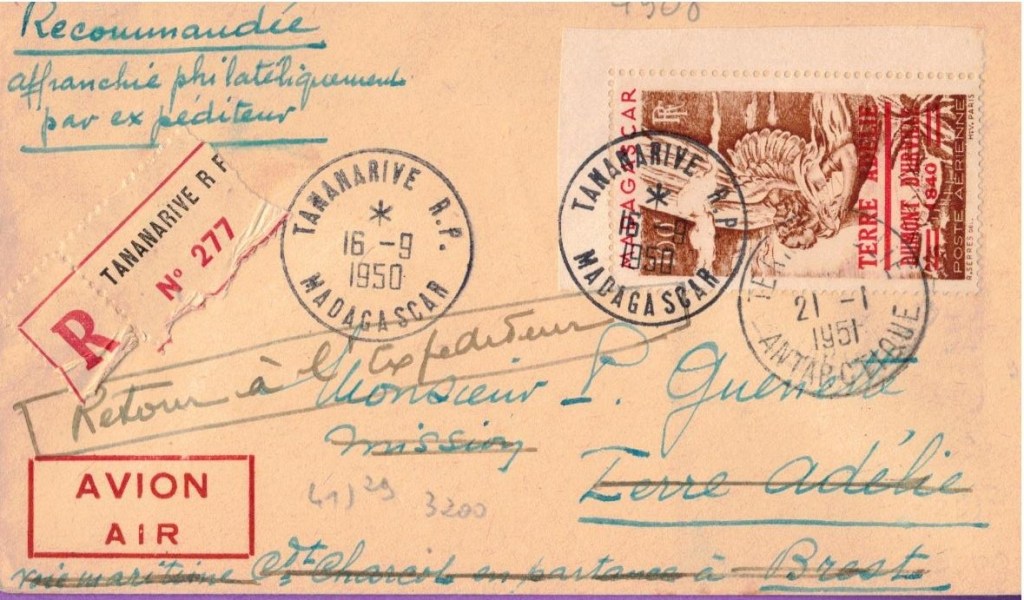 Recommandée
affranchie philatéliquement
par expéditeur
TANANARIVE R P
N° 277
R
TANANARIVE R.P.
*
16 -9
1950
MADAGASCAR
TANANARIVE R.P.
*
16 -9
1950
MADAGASCAR
MADAGASCAR
50F
RF
TERRE ADÉLIE
DUMONT D'URVILLE
1840
POSTE AÉRIENNE
R. SERRES DEL.
INST. PARIS
21 -1
1951
ANTARCTIQUE
Retour à l'Expéditeur
Monsieur P.
mission
Terre Adélie
AVION
AIR
41) 29
3200
voie maritime Cdt Charcot en partance à Brest